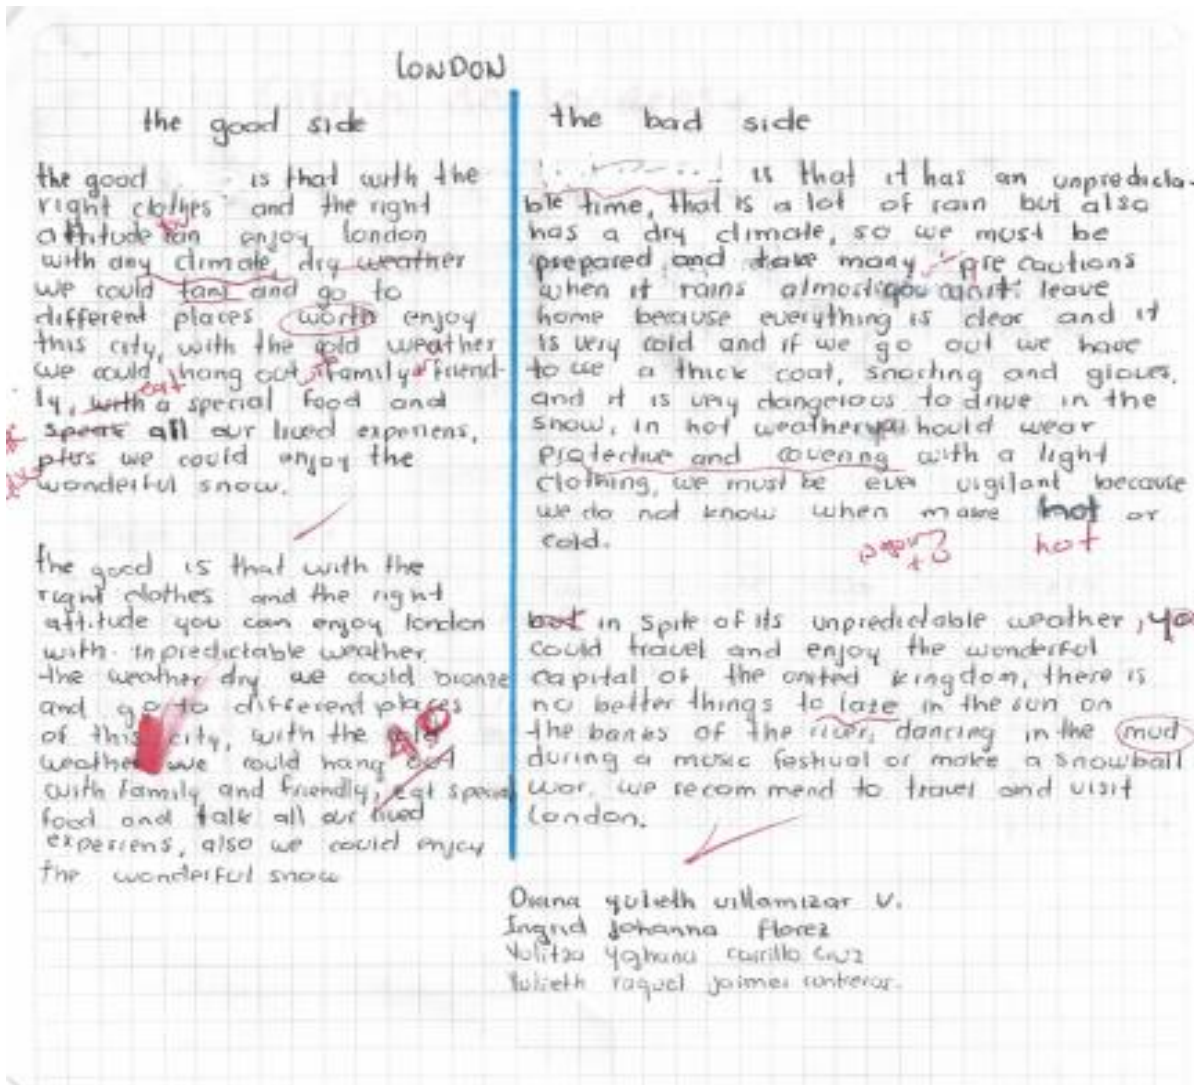 LONDON
the good side
the good is that with the
right clothes and the right
attitude can enjoy london
with any climate dry weather
we could tans and go to
different places worth enjoy
this city, with the cold weather
we could hang out family friend-
eat
ly, with a special food and
speak all our lived experiens,
plus we could enjoy the
wonderful snow.
the good is that with the
right clothes and the right
attitude you can enjoy london
with inpredictable weather
the weather dry we could bronze
and go to different places
of this city, with the cold
weather we could hang out
with family and friendly, eat special
food and talk all our lived
experiens, also we could enjoy
the wonderful snow
the bad side
is that it has an unpredicta-
ble time, that is a lot of rain but also
has a dry climate, so we must be
prepared and take many pre cautions
when it rains almost you can't leave
home because everything is clear and it
is very cold and if we go out we have
to use a thick coat, and gloves,
and it is very dangerous to drive in the
snow, in hot weather should wear
protective and covering with a light
clothing, we must be ever vigilant because
we do not know when make hot or
cold.
hot
but in spite of its unpredictable weather, yo
could travel and enjoy the wonderful
capital of the united kingdom, there is
no better things to laze in the sun on
the banks of the river, dancing in the mud
during a music festival or make a snowball
war. we recommend to travel and visit
london.
Diana yulieth villamizar V.
Ingrid Johanna florez
Yulitza Yohana carrillo cruz
Yulieth raquel jaimes contreras.